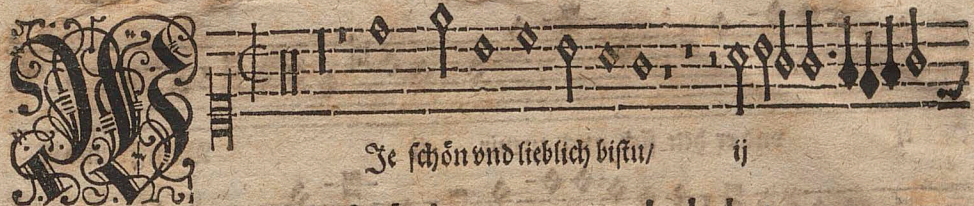 WJe schön vnd lieblich bistu/ ij